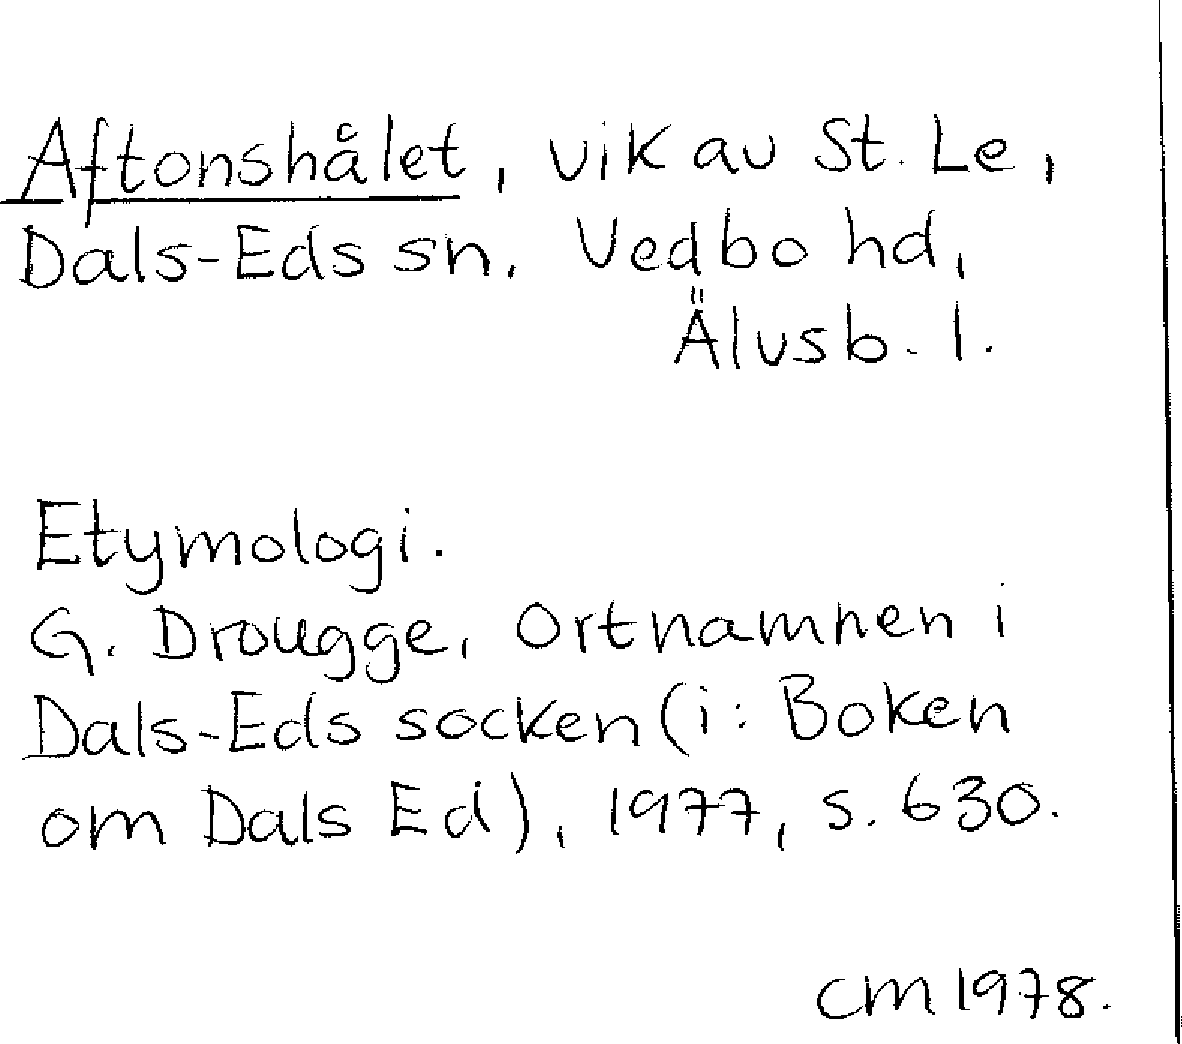 Aftonshålet, vik av St. Le,
Dals-Eds sn, Vedbo hd,
Älvsb. l.
Etymologi.
G. Drougge, Ortnamnen i
Dals-Eds socken (i: Boken
om Dals Ed), 1977, s. 630.
CM 1978.